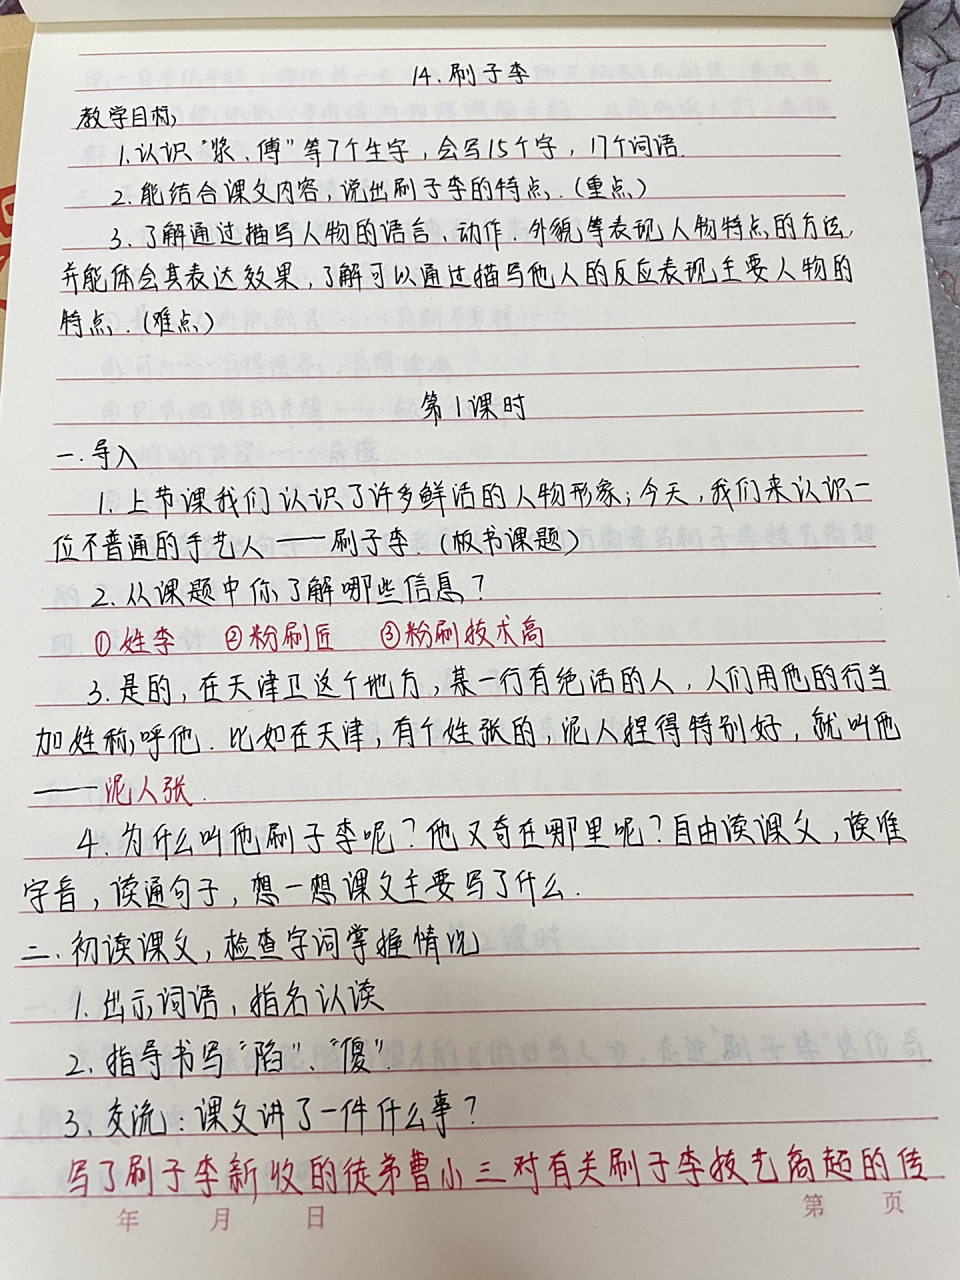 14.刷子李
教学目标:
1.认识“浆、傅”等7个生字，会写15个字，17个词语.
2.能结合课文内容，说出刷子李的特点.(重点)
3.了解通过描写人物的语言、动作.外貌等表现人物特点的方法,
并能体会其表达效果，了解可以通过描写他人的反应表现主要人物的
特点.(难点)
第1课时
一.导入
1.上节课我们认识了许多鲜活的人物形象；今天，我们来认识一
位不普通的手艺人——刷子李（板书课题）
2.从课题中你了解哪些信息？
①姓李 ②粉刷匠 ③粉刷技术高
3.是的，在天津卫这个地方，某一行有绝活的人，人们用他的行当
加姓称呼他.比如在天津，有个姓张的，泥人捏得特别好，就叫他
——泥人张.
4.为什么叫他刷子李呢？他又奇在哪里呢？自由读课文，读准
字音，读通句子，想一想课文主要写了什么.
二.初读课文，检查字词掌握情况
1.出示词语，指名认读
2.指导书写“陷”、“傻”.
3.交流：课文讲了一件什么事？
写了刷子李新收的徒弟曹小三对有关刷子李技艺高超的传
年 月 日
第 页